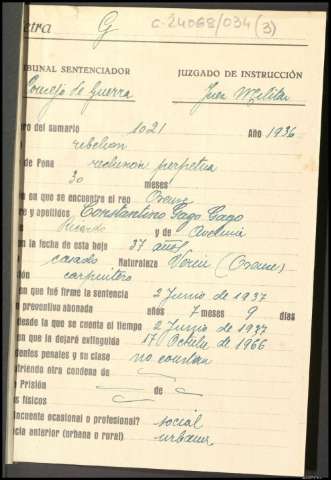 etra G C-24068/034(3)
IBUNAL SENTENCIADOR JUZGADO DE INSTRUCCIÓN
Consejo de Guerra Juez Militar
ero del sumario 1021 Año 1936
rebelion
de Pena reclusion perpetua
30 meses
en que se encuentra el reo Orense
re y apellidos Constantino Gago Gago
Ricardo y de Avelina
en la fecha de esta hoja 37 años
casado Naturaleza Verin (Orense)
ón carpintero
en que fué firme la sentencia 2 Junio de 1937
n preventiva abonada años 7 meses 9 días
desde la que se cuenta el tiempo 2 Junio de 1937
en que la dejará extinguida 17 Octubre de 1966
dentes penales y su clase no constan
friendo otra condena de
Prisión de
s físicos
ncuente ocasional o profesional? social
cia anterior (urbana o rural) urbana